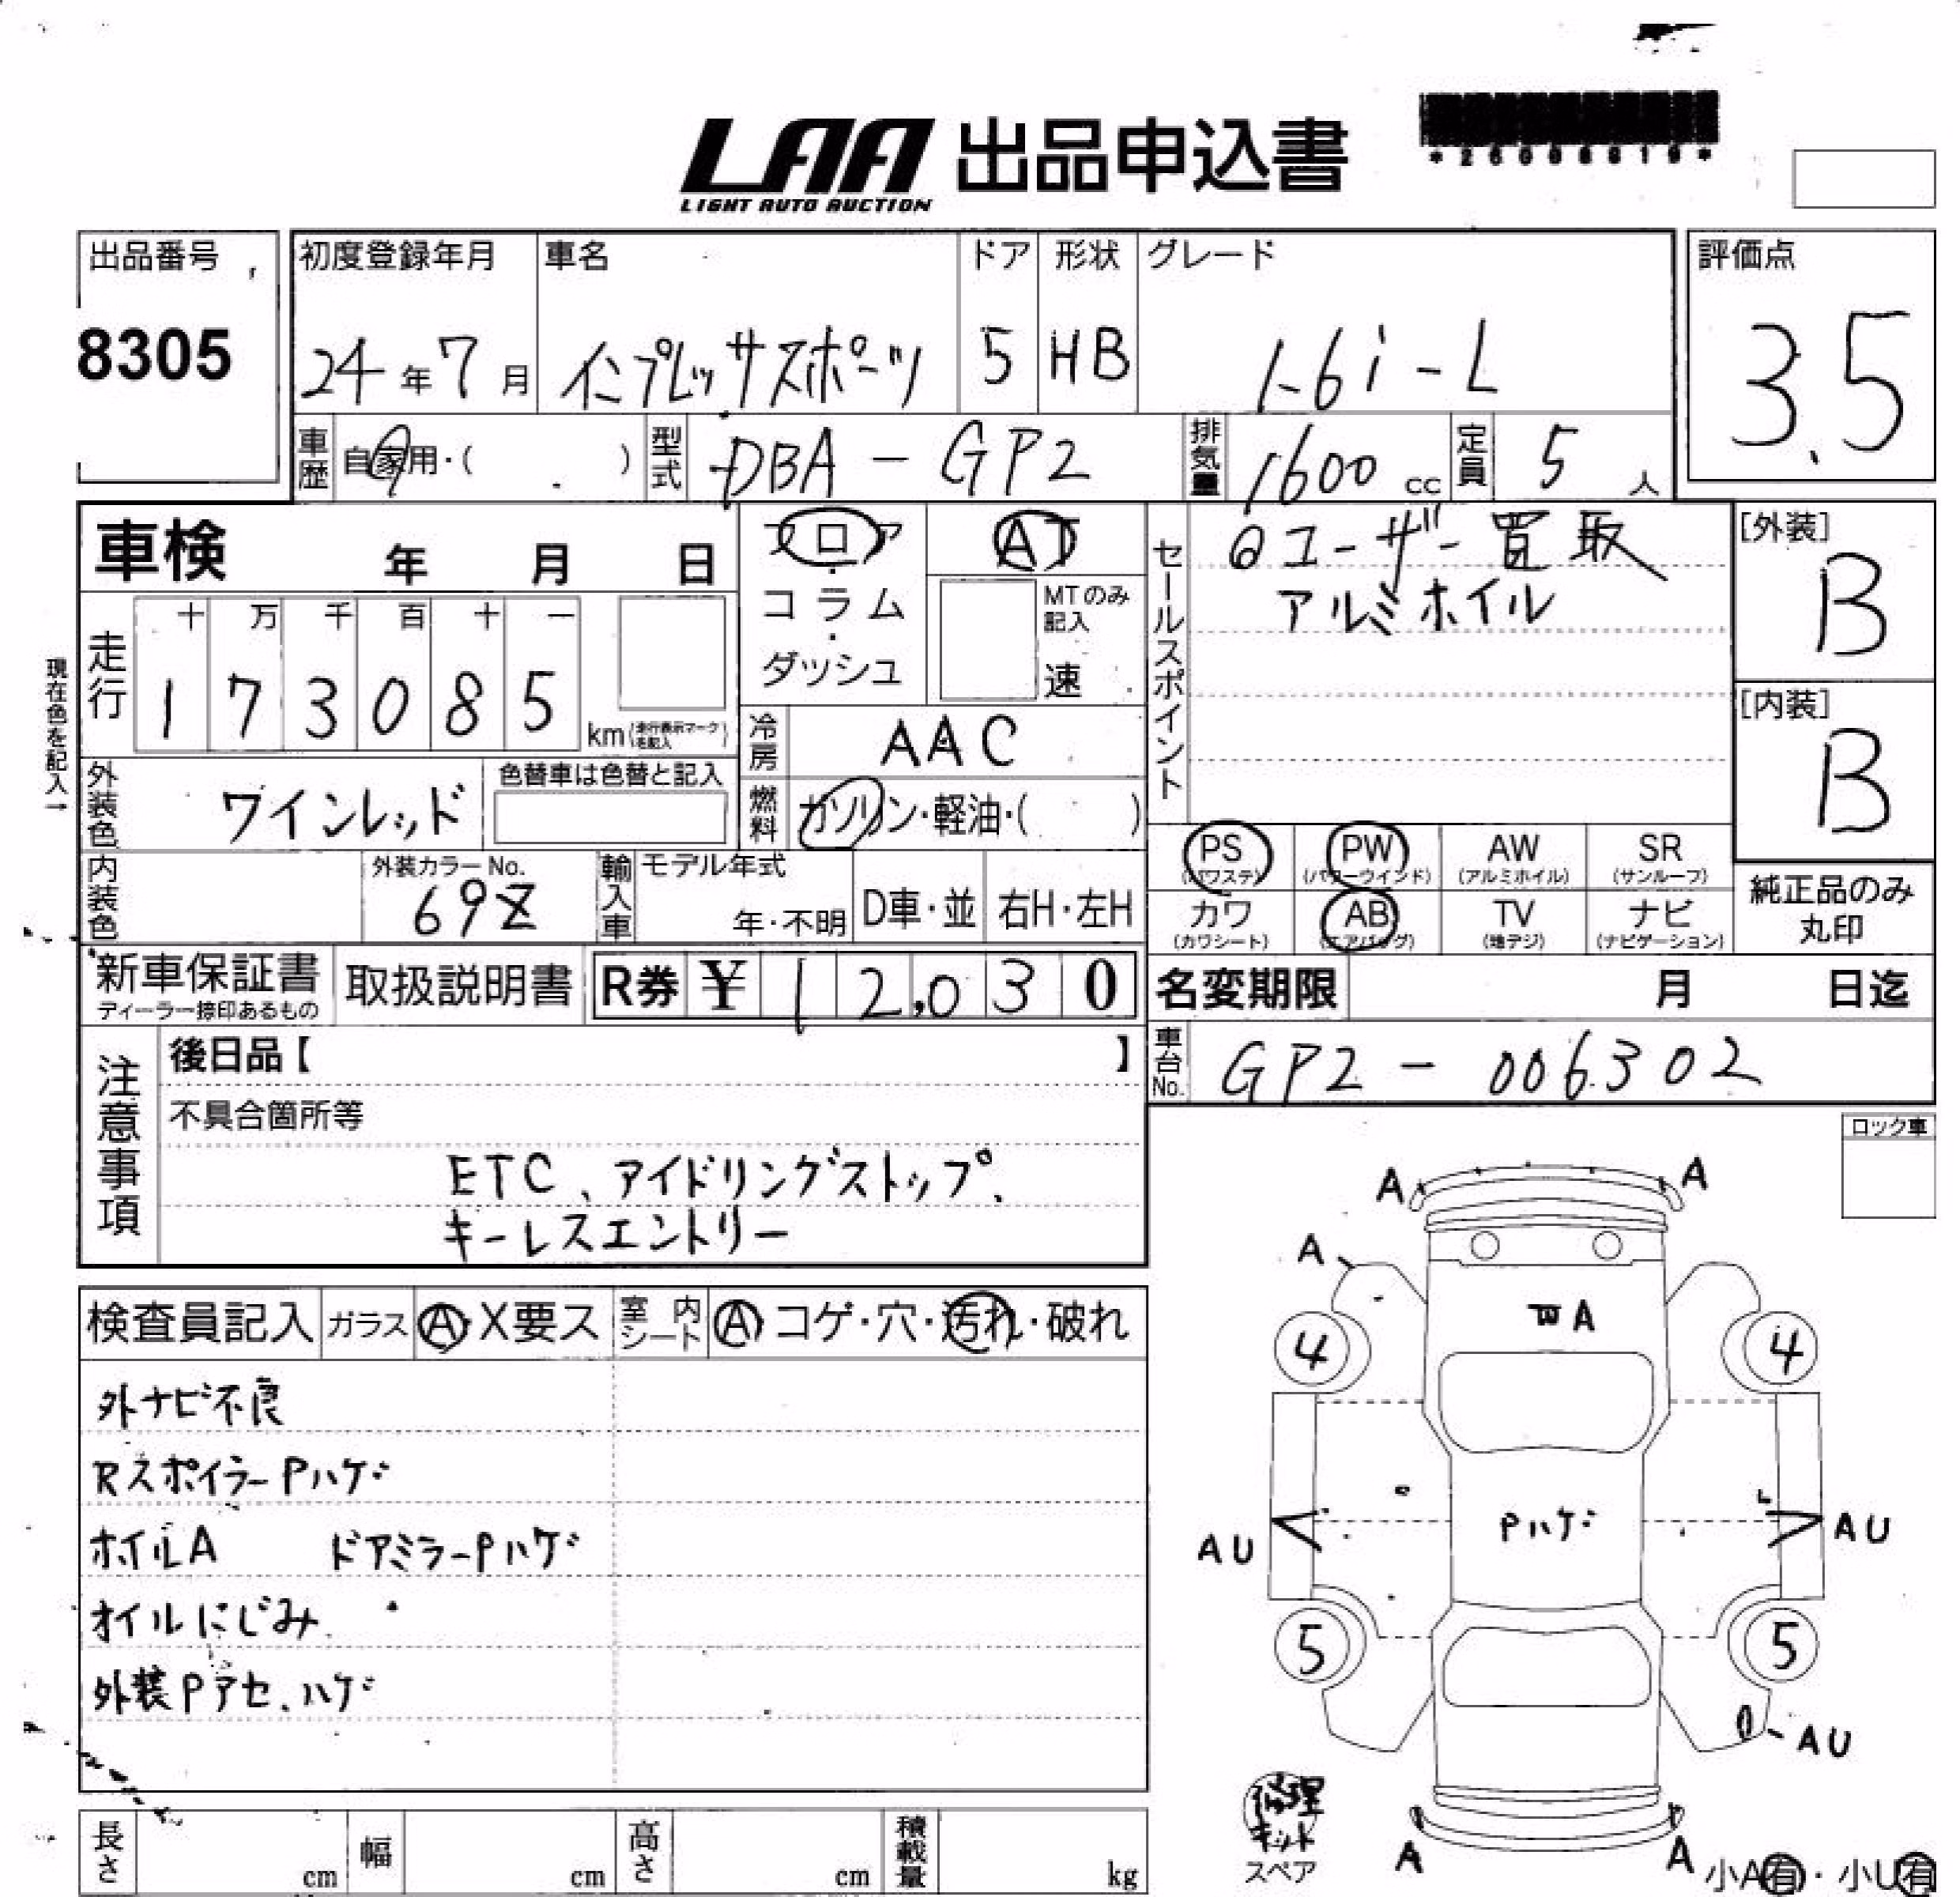 LAA 出品申込書
LIGHT AUTO AUCTION
出品番号
8305
初度登録年月
24年7月
車名
インプレッサスポーツ
ドア
5
形状
HB
グレード
1.6i-L
評価点
3.5
車歴
自家用・( )
型式
DBA-GP2
排気量
1600cc
定員
5人
車検 年 月 日
フロア・コラム・ダッシュ
AT
MTのみ記入
速
セールスポイント
ユーザー買取
アルミホイル
[外装]
B
[内装]
B
現在色を記入→
走行
十 万 千 百 十 一
1 7 3 0 8 5
km(走行表示マークを記入)
冷房
AAC
外装色
ワインレッド
色替車は色替と記入
燃料
ガソリン・軽油・( )
PS (パワステ)
PW (パワーウインド)
AW (アルミホイル)
SR (サンルーフ)
カワ (カワシート)
AB (エアバッグ)
TV (地デジ)
ナビ (ナビゲーション)
純正品のみ丸印
内装色
外装カラーNo.
69Z
輸入車
モデル年式
年・不明
D車・並
右H・左H
新車保証書
ディーラー捺印あるもの
取扱説明書
R券 ¥12,030
名変期限 月 日迄
車台No.
GP2-006302
注意事項
後日品【 】
不具合箇所等
ETC、アイドリングストップ、
キーレスエントリー
ロック車
検査員記入
ガラス
A・X要ス
室内シート
A コゲ・穴・汚れ・破れ
外ナビ不良
Rスポイラー Pハゲ
ホイルA ドアミラーPハゲ
オイルにじみ
外装Pアセ、ハゲ
A A
A
A
4 4
Pハゲ
AU AU
5 5
AU
修理キット
スペア
A A
小A有・小U有
長さ cm
幅 cm
高さ cm
積載量 kg